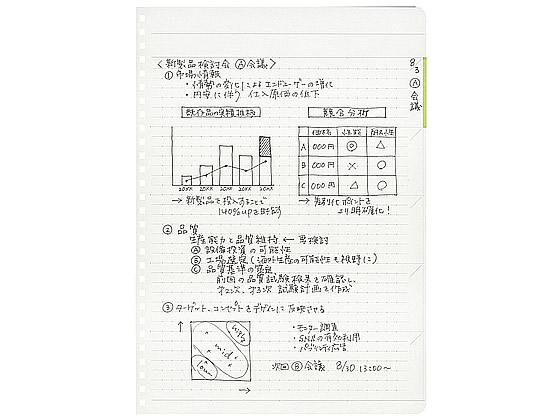 〈新製品検討会 Ⓐ会議〉
8/3 Ⓐ会議
① 市場情報
・情勢の変化によるエンドユーザーの増化
・円安に伴う仕入原価の低下
既存品の実績推移
20XX 20XX 20XX 20XX 20XX
→新製品を投入することで
140%upを計画
競合分析
価格 性能
A 000円 ◎ △
B 000円 × ○
C 000円 △ ○
→差別化ポイントを
より明確化!
② 品質
生産能力と品質維持 ← 再検討
Ⓐ 設備投資の可能性
Ⓑ 工場選定(海外生産の可能性も視野に)
Ⓒ 品質基準の策定
前回の品質試験結果を確認し、
第2次、第3次試験計画を作成
③ ターゲット、コンセプトをデザインに反映させる
high
mid
low
・モニター調査
・SNSの有効利用
・パブリシティ広告
次回Ⓑ会議 8/30 13:00〜